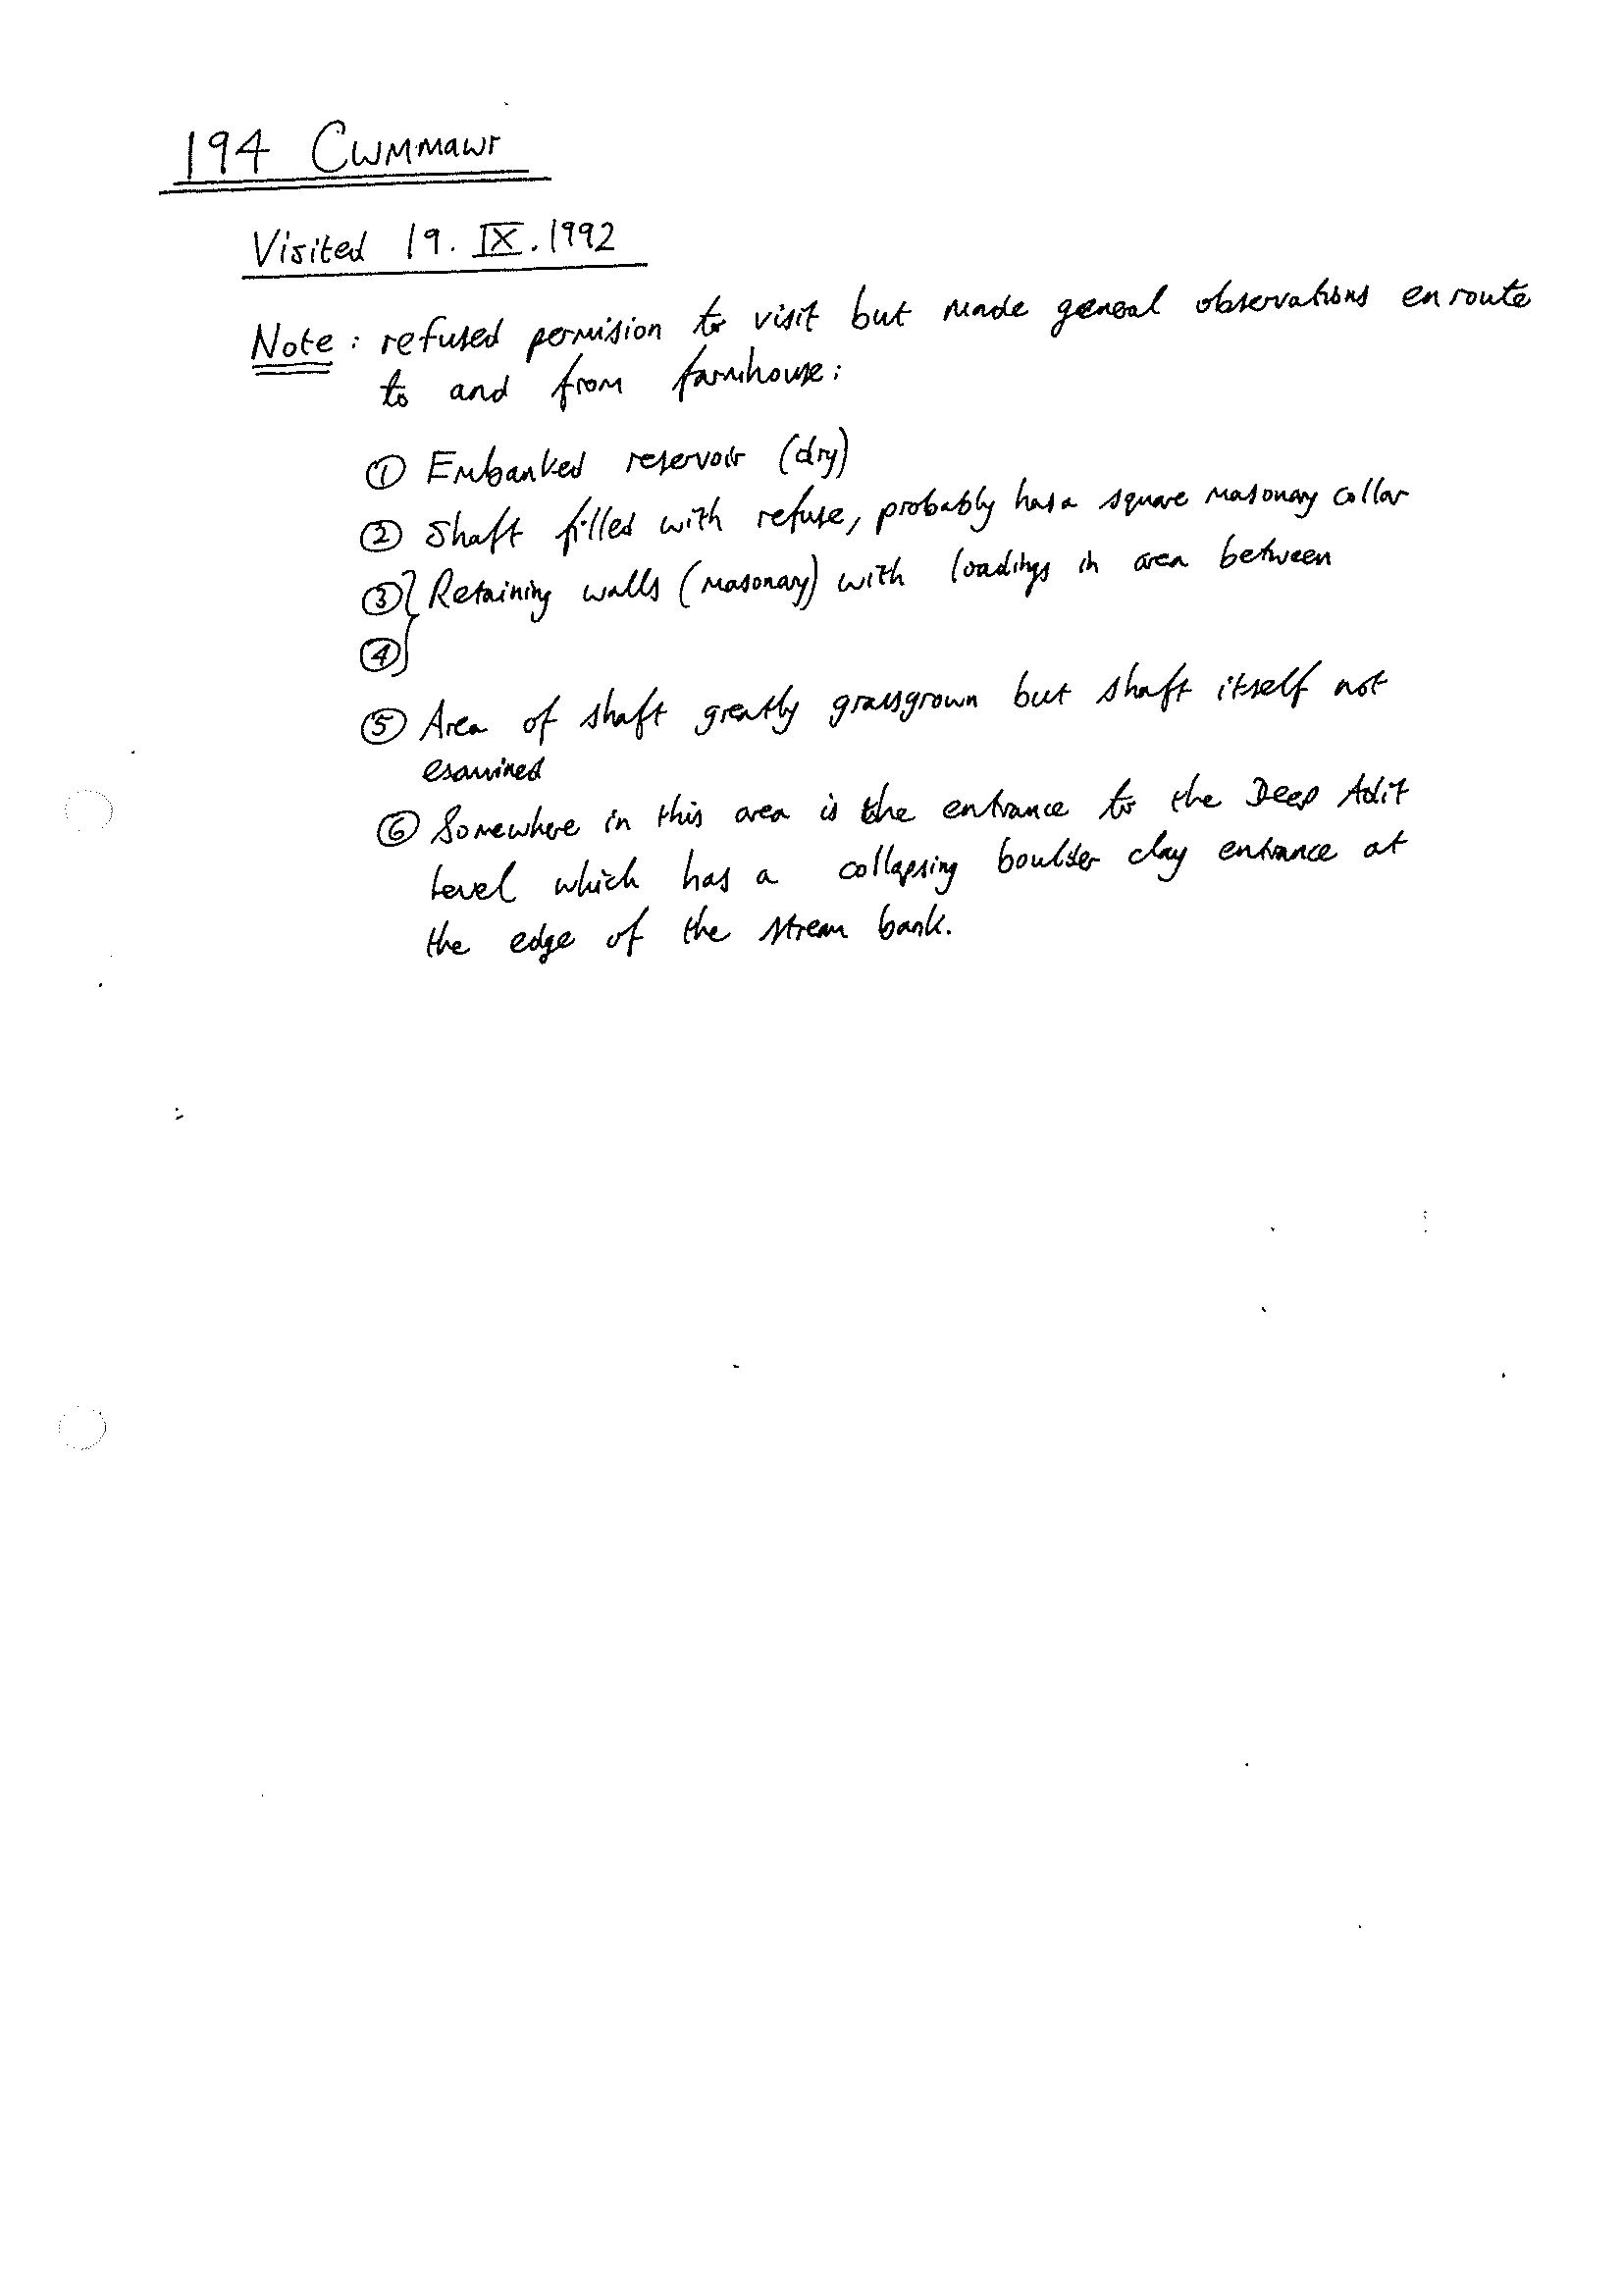 194 Cwmmawr
Visited 19. IX. 1992
Note: refused permision to visit but made general observations en route
to and from farmhouse:
① Embanked reservoir (dry)
② Shaft filled with refuse, probably has a square masonary collar
③ } Retaining walls (masonary) with loadings in area between
④
⑤ Area of shaft greatly grassgrown but shaft itself not
examined
⑥ Somewhere in this area is the entrance to the Deep Adit
Level which has a collapsing boulder clay entrance at
the edge of the stream bank.